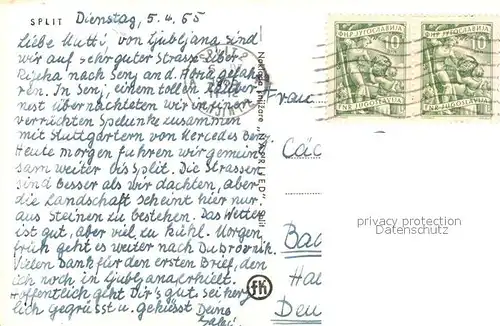 SPLIT Dienstag, 5.4.55
Liebe Mutti, von Ljubljana sind
wir auf sehr guter Strasse über
Rijeka nach Senj and. Adria gefah
ren. In Senj, einem tollen Räuber
nest übernachteten wir in einer
verrückten Spelunke zusammen
mit Stuttgartern von Mercedes Benz.
Heute morgen fuhren wir gemein
sam weiter bis Split. Die Strassen
sind besser als wir dachten, aber
die Landschaft scheint hier nur
aus Steinen zu bestehen. Das Wetter
ist gut, aber viel zu kühl. Morgen
früh geht es weiter nach Dubrovnik.
Vielen Dank für den ersten Brief, den
ich noch in Ljubljana erhielt.
Hoffentlich geht Dir's gut. Sei herz
lich gegrüsst u. geküsst Deine
Naklada knjižare „NAPRIJED", Split
fK
ФНР ЈУГОСЛАВИЈА
10
FNR JUGOSLAVIJA
ФНР ЈУГОСЛАВИЈА
10
FNR JUGOSLAVIJA
Frau
Cäc
Bad
Hal
Deu
privacy protection
Datenschutz